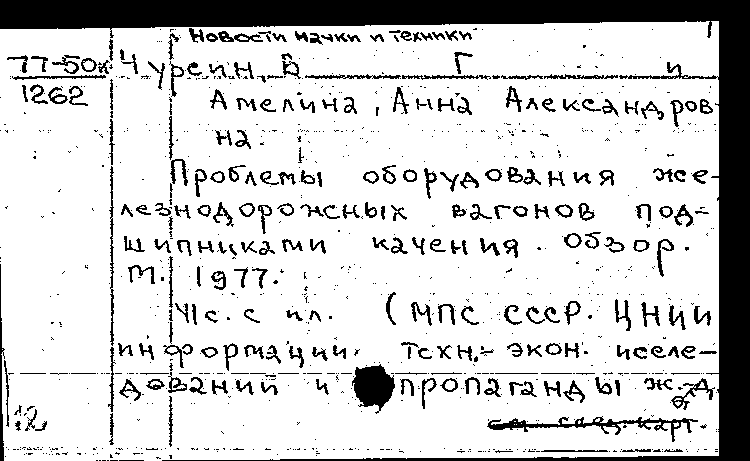 Новости науки и техники
77-50к Чурсин, В Г и
1262
Амелина, Анна Александров-
на.
Проблемы оборудования же-
лезнодорожных вагонов под-
шипниками качения. Обзор.
М. 1977.
41с. с ил. (МПС СССР. ЦНИИ
информации, техн.-экон. иссле-
дований и пропаганды ж.-д.
см. след. карт.
12